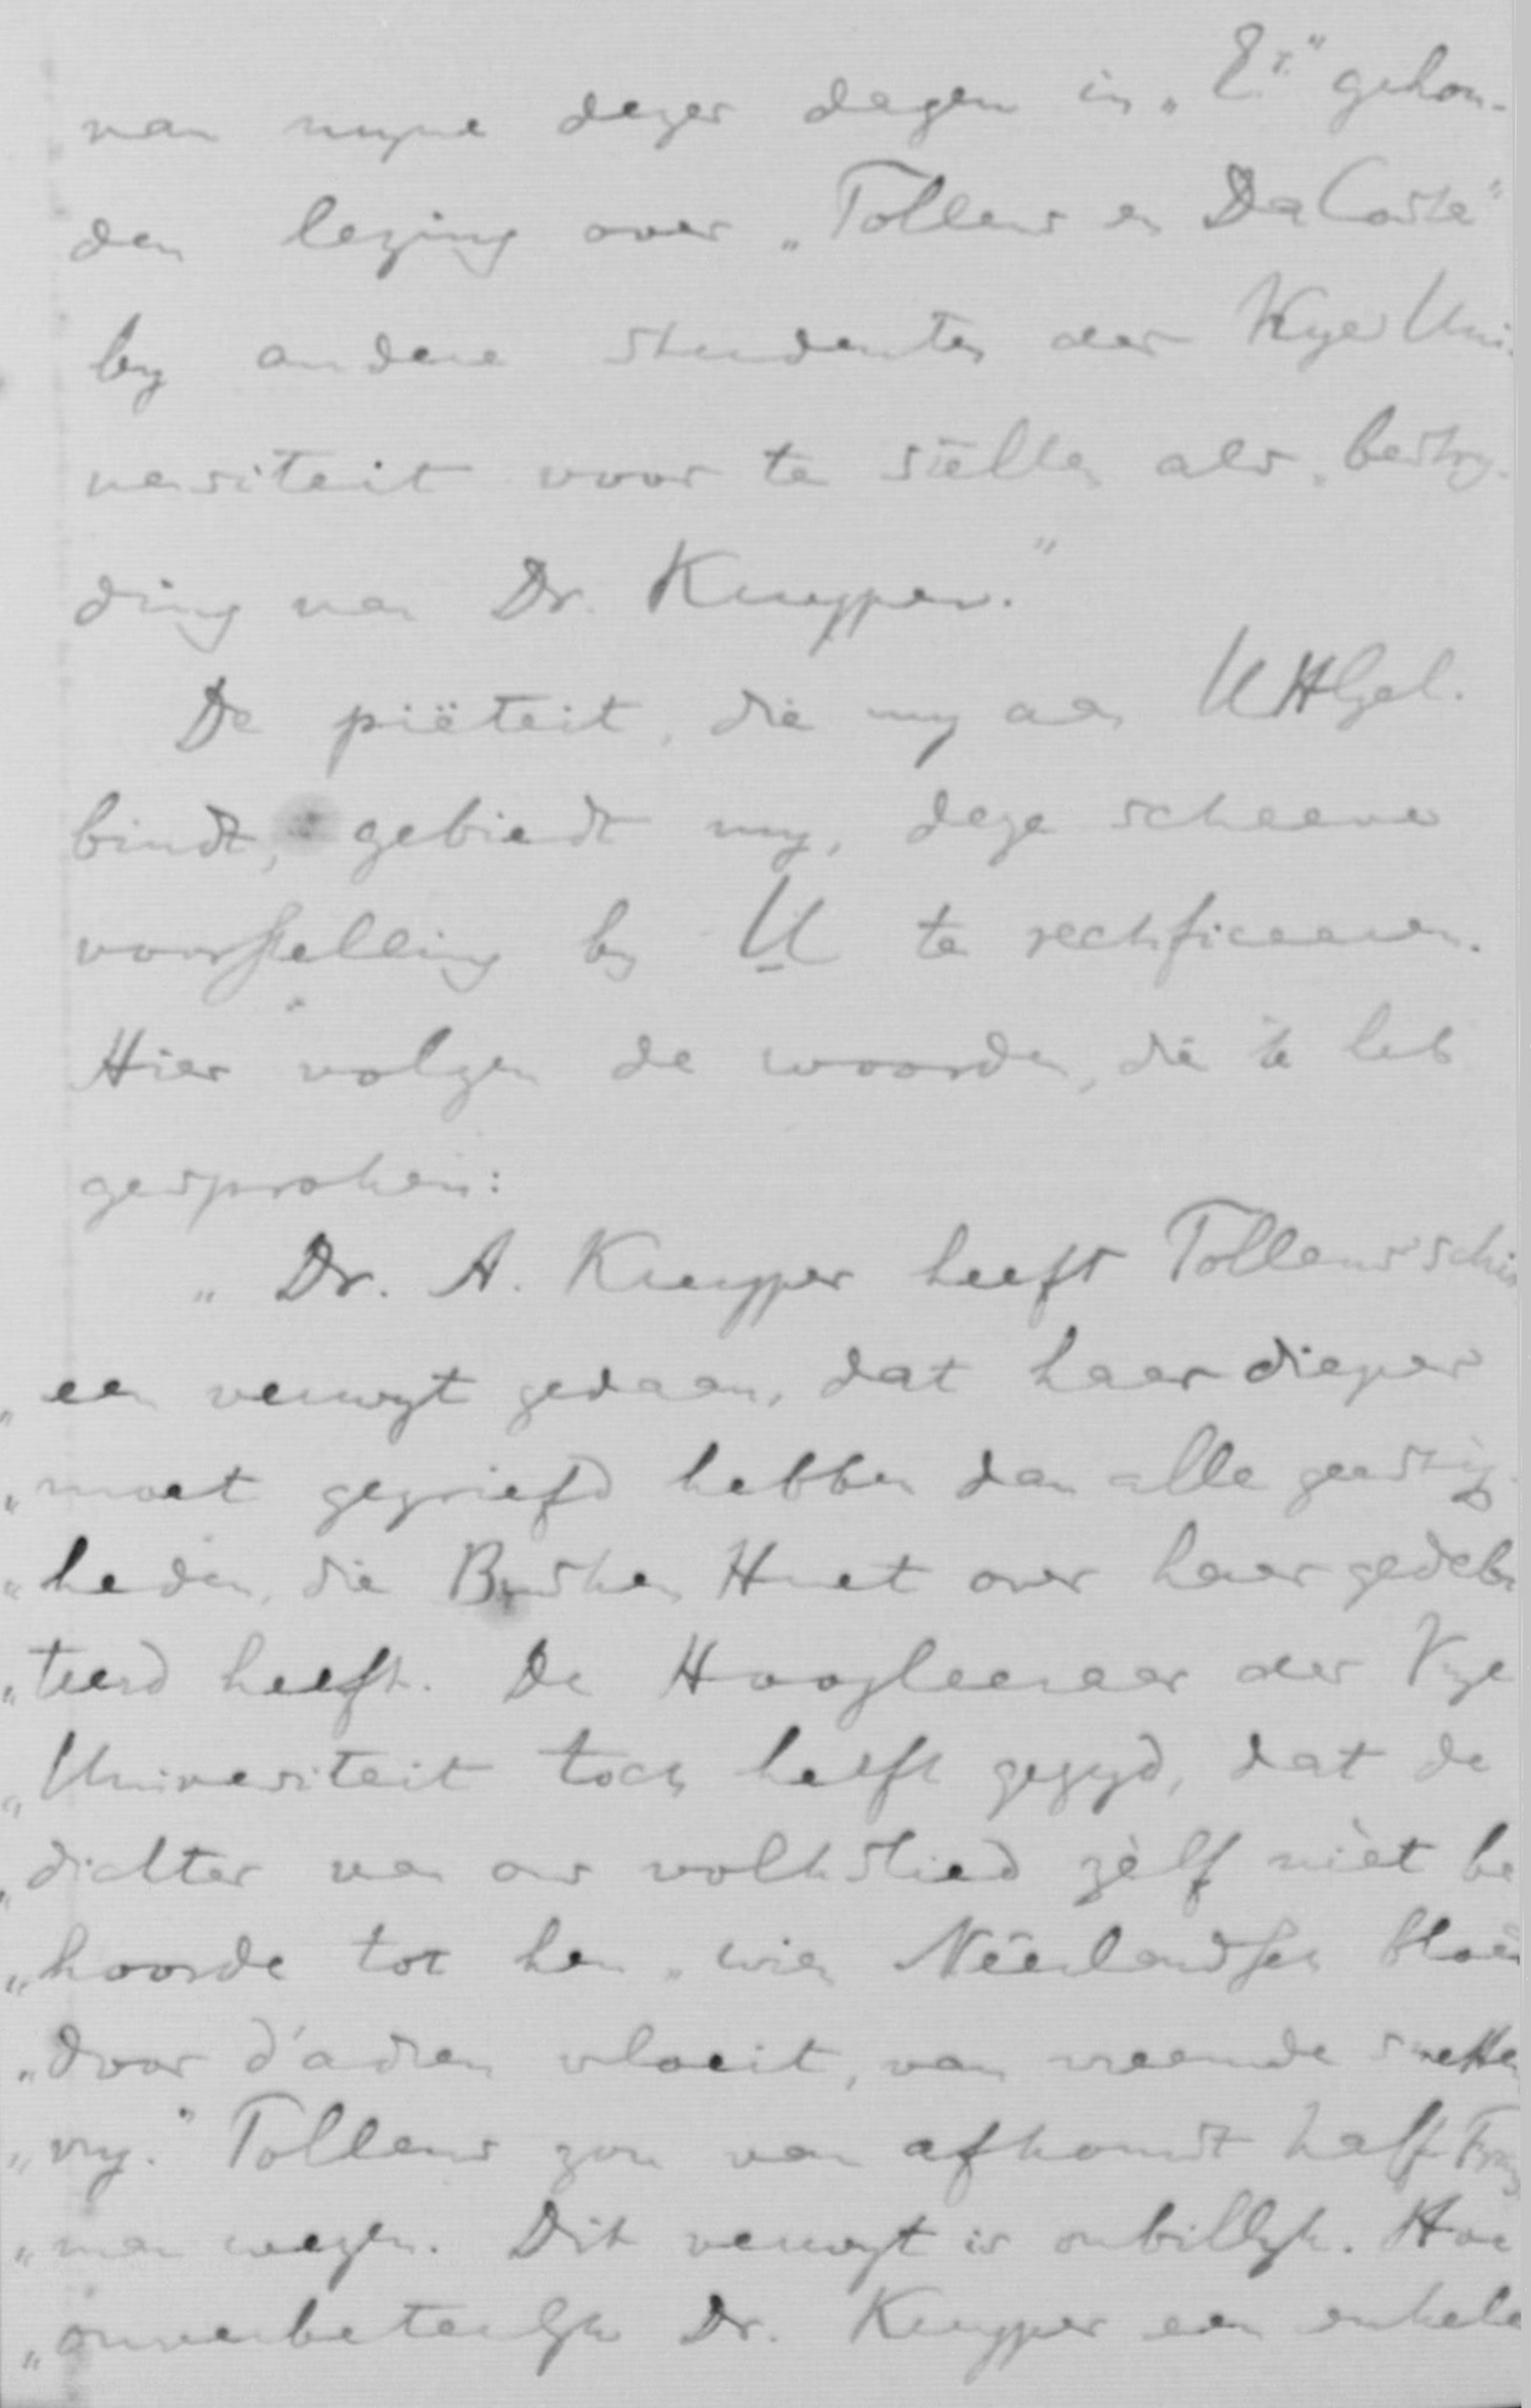 van mijne dezer dagen in „E.T." gehou-
den lezing over „Tollens en Da Costa"
bij andere studenten der Vrije Uni-
versiteit voor te stellen als „bestrij-
ding van Dr. Kuyper."
De piëteit, die mij aan UHGel.
bindt, gebiedt mij, deze scheeve
voorstelling bij U te rectificeeren.
Hier volgen de woorden, die ik heb
gesproken:
„Dr. A. Kuyper heeft Tollens' schim
„een verwijt gedaan, dat haar dieper
„moet gegriefd hebben dan alle geestig-
„heden, die Busken Huet over haar gedebi
„teerd heeft. De Hoogleeraar der Vrije
„Universiteit toch heeft gezegd, dat de
„dichter van ons volkslied zèlf nièt be
„hoorde tot hen „wien Néerlandsch bloed
„door d'adren vloeit, van vreemde smetten
„vrij." Tollens zou van afkomst half Frans
„man wezen. Dit verwijt is onbillijk. Hoe
„onverbeterlijk Dr. Kuyper een enkele